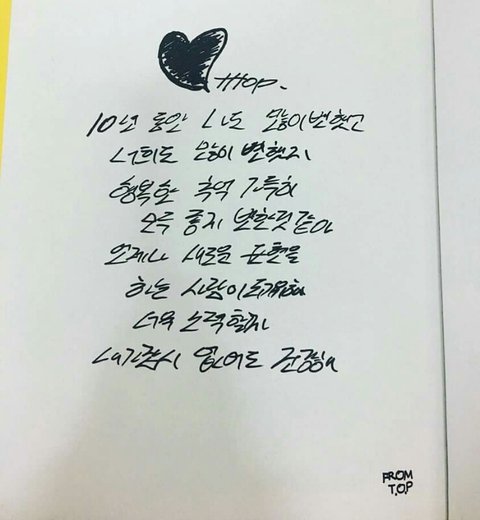 TTOP.
10년 동안 나도 많이 변했고
너희도 많이 변했지
행복한 추억 가득히
모두 좋게 변한것 같아
언제나 새로운 표현을
하는 사람이
더욱 노력할게
내가 잠시 없어도 건강해
FROM
T.O.P